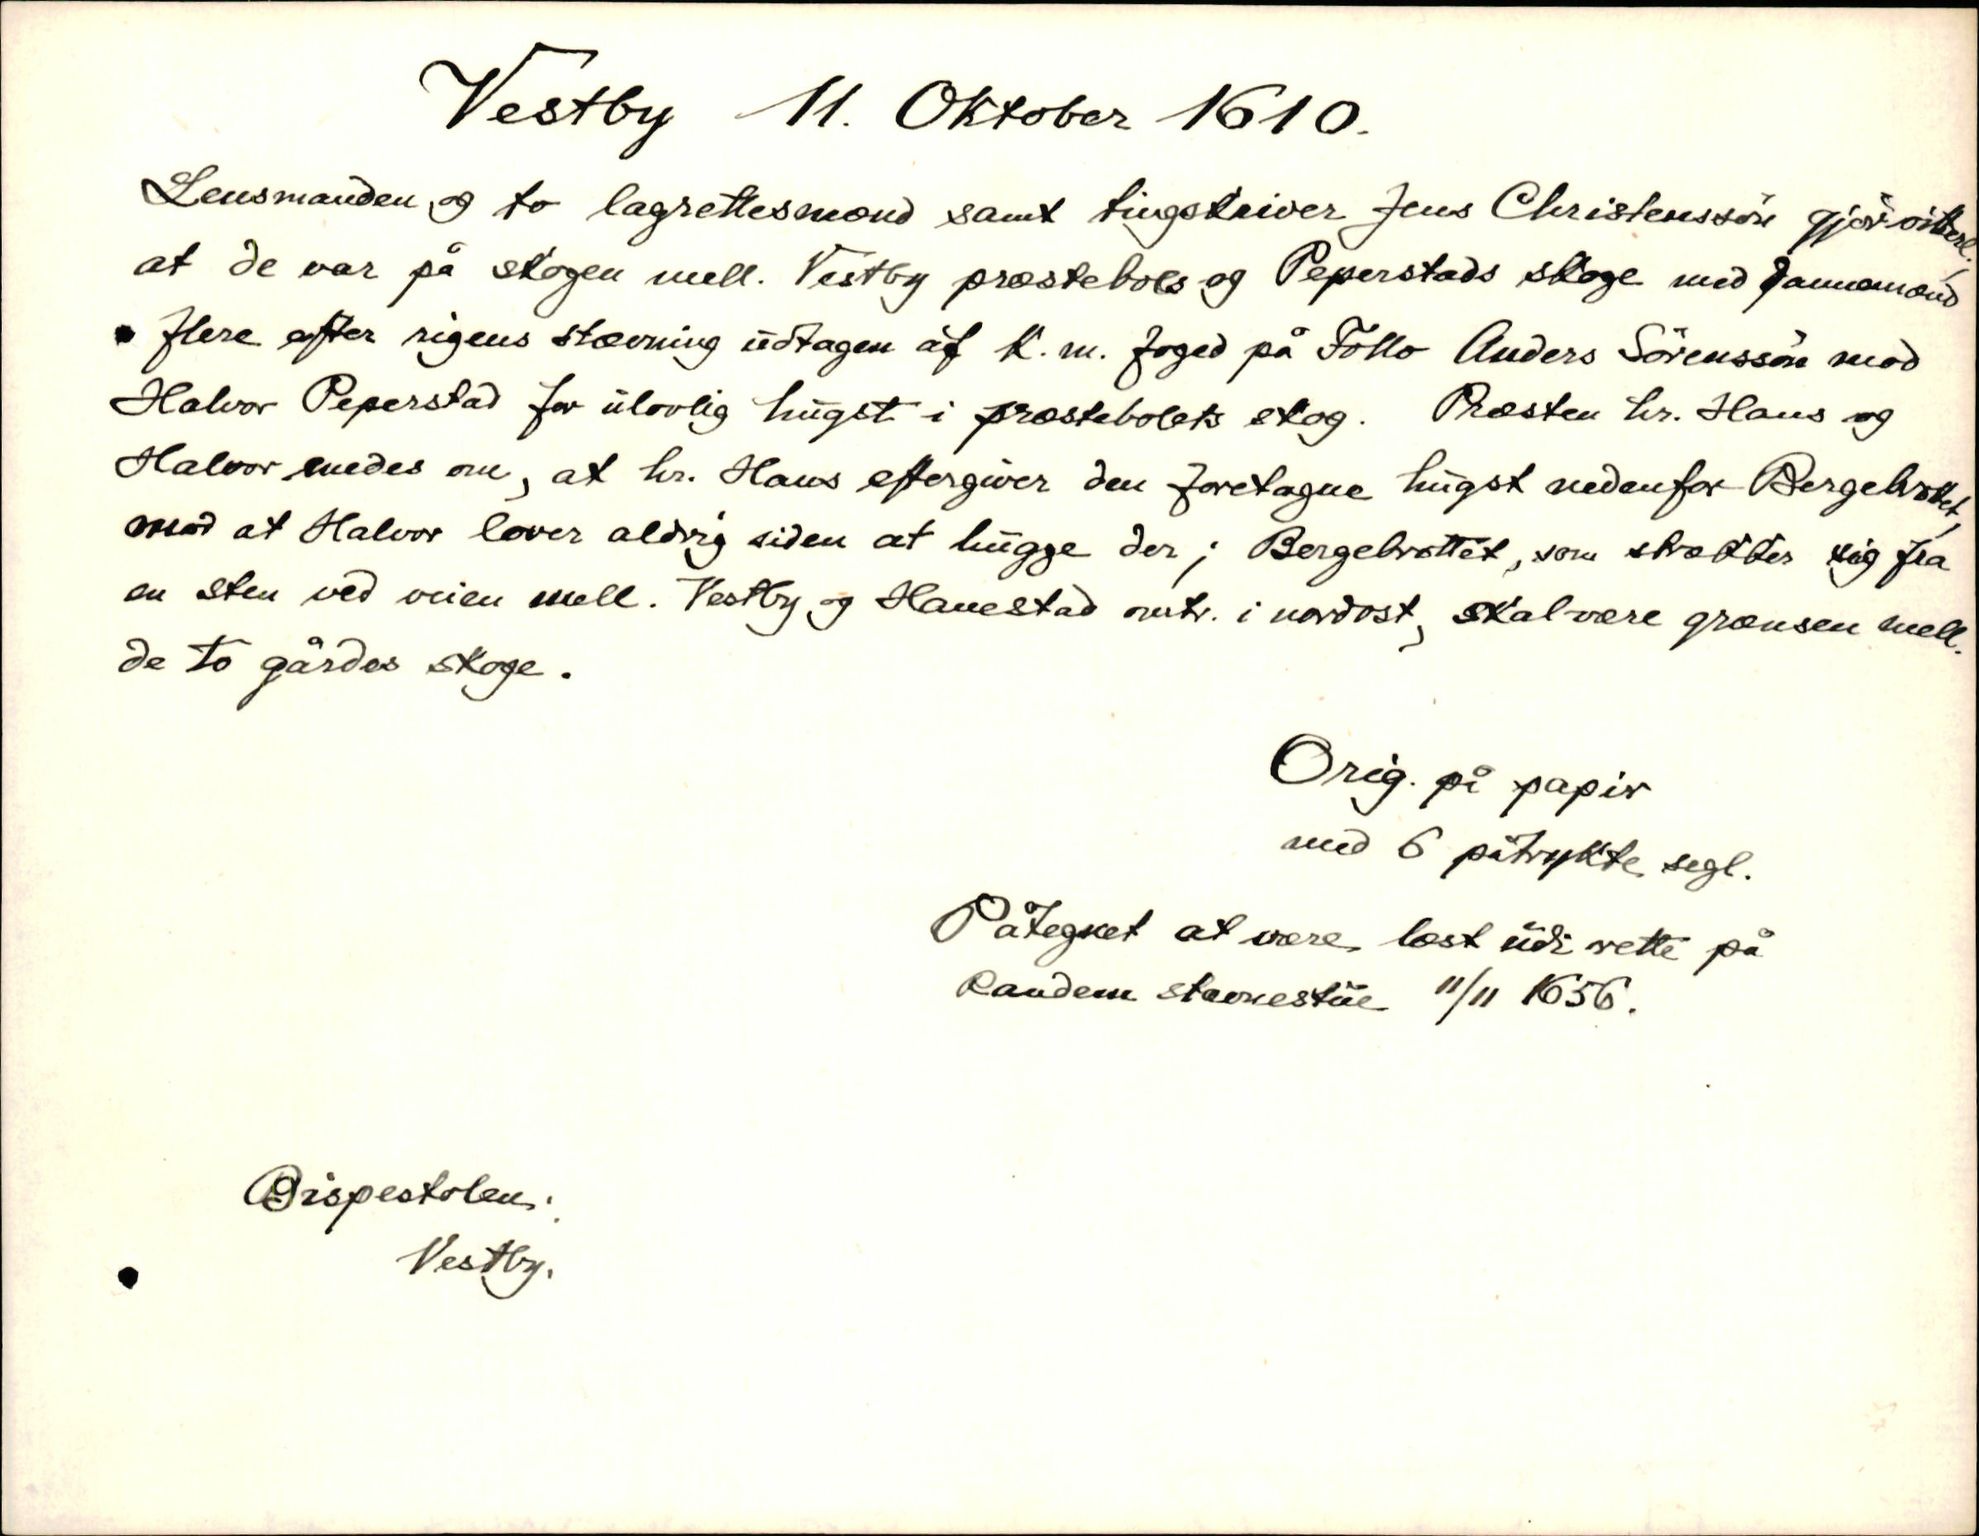 Vestby 11. Oktober 1610.
Lensmanden og to lagrettesmænd samt tingskriver Jens Christenssön gjör vitterl.,
at de var på skogen mell. Vestby præstebols og Peperstads skoge med dannemænd
flere efter rigens stævning udtagen af K. m. foged på Follo Anders Sörenssön mod
Halvor Peperstad for ulovlig hugst i præstebolets skog. Præsten hr. Hans og
Halvor enedes om, at hr. Hans eftergiver den foretagne hugst nedenfor Bergebrottet,
mod at Halvor lover aldrig siden at hugge der; Bergebrottet, som strækker sig fra
en sten ved veien mell. Vestby og Hanestad omtr. i nordost, skal være grænsen mell.
de to gårdes skoge.
Orig. på papir
med 6 påtrykte segl.
Påtegnet at være læst udi rette på
Randem stævnestue 11/11 1656.
Bispestolen:
Vestby.